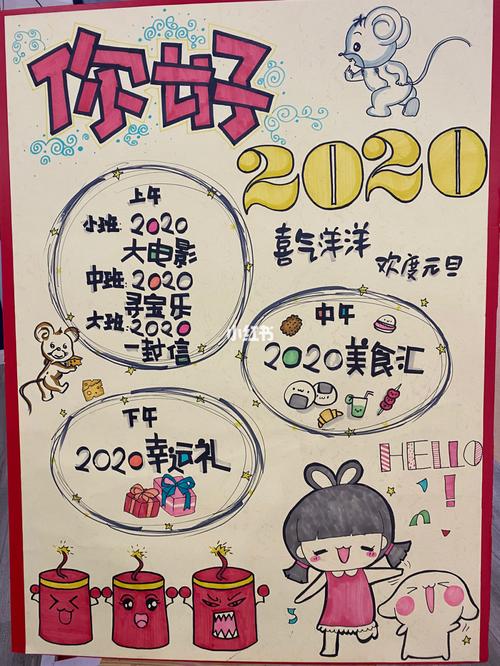 你好
2020
喜气洋洋
欢度元旦
上午
小班:2020
大电影
中班:2020
寻宝乐
大班:2020
一封信
小红书
中午
2020美食汇
下午
2020幸运礼
HELLO
!